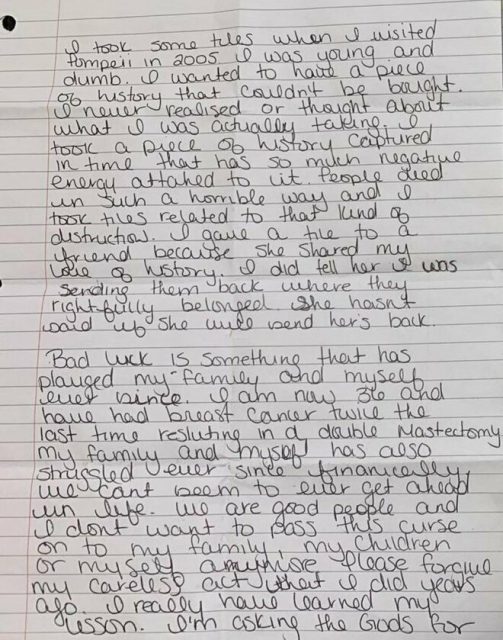 I took some tiles when I visited
Pompeii in 2005 I was young and
dumb. I wanted to have a piece
of history that couldn't be bought.
I never realised or thought about
what I was actually taking. I
took a piece of history captured
in time that has so much negative
energy attahed to it. People died
in such a horrible way and I
took tiles related to that kind of
distruction. I gave a tile to a
friend because she shared my
love of history. I did tell her I was
sending them back where they
rightfully belonged. She hasn't
said if she will send her's back.
Bad luck is something that has
plauged my family and myself
ever since. I am now 36 and
have had breast cancer twice the
last time resluting in a double Mastectomy
my family and myself has also
struggled ever since financically,
we cant seem to ever get ahead
in life. We are good people and
I dont want to pass this curse
on to my family, my children
or myself anymore Please forgive
my careless act that I did years
ago. I really have learned my
lesson. I'm asking the Gods for